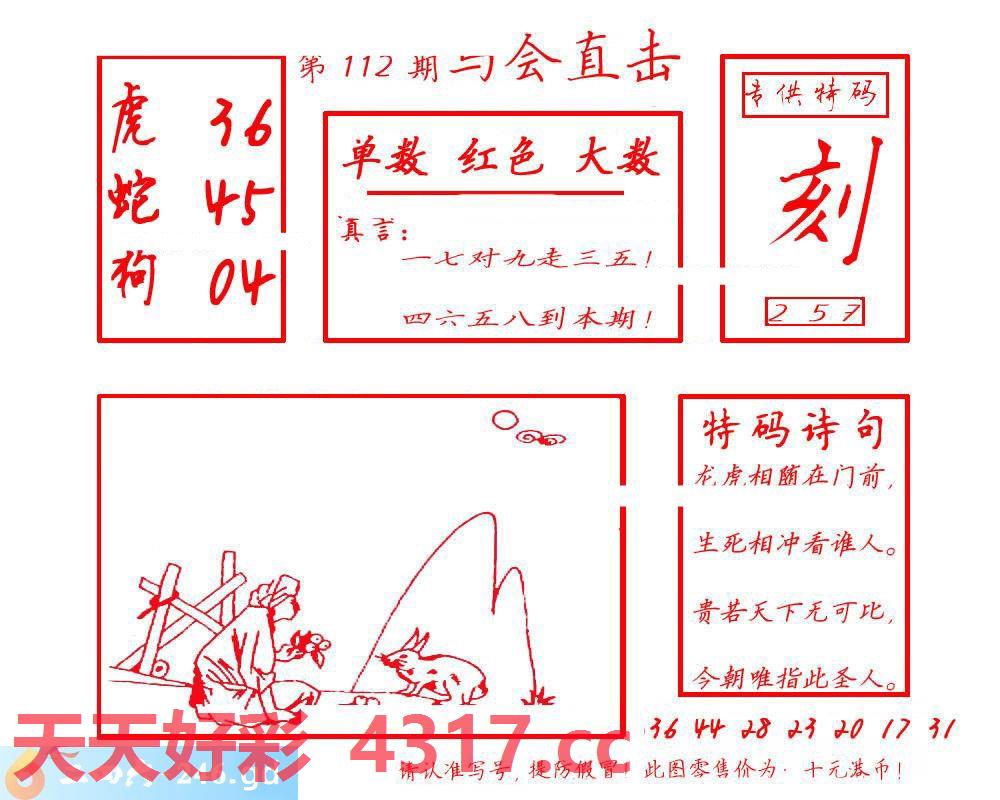 第 112 期 与会直击
虎 36
蛇 45
狗 04
单数 红色 大数
真言:
一七对九走三五!
四六五八到本期!
专供特码
刻
2 5 7
特码诗句
龙虎相随在门前,
生死相冲看谁人。
贵若天下无可比,
今朝唯指此圣人。
36 44 28 23 20 17 31
天天好彩 4317.cc
246.gd
请认准写号,提防假冒!此图零售价为·十元港币!